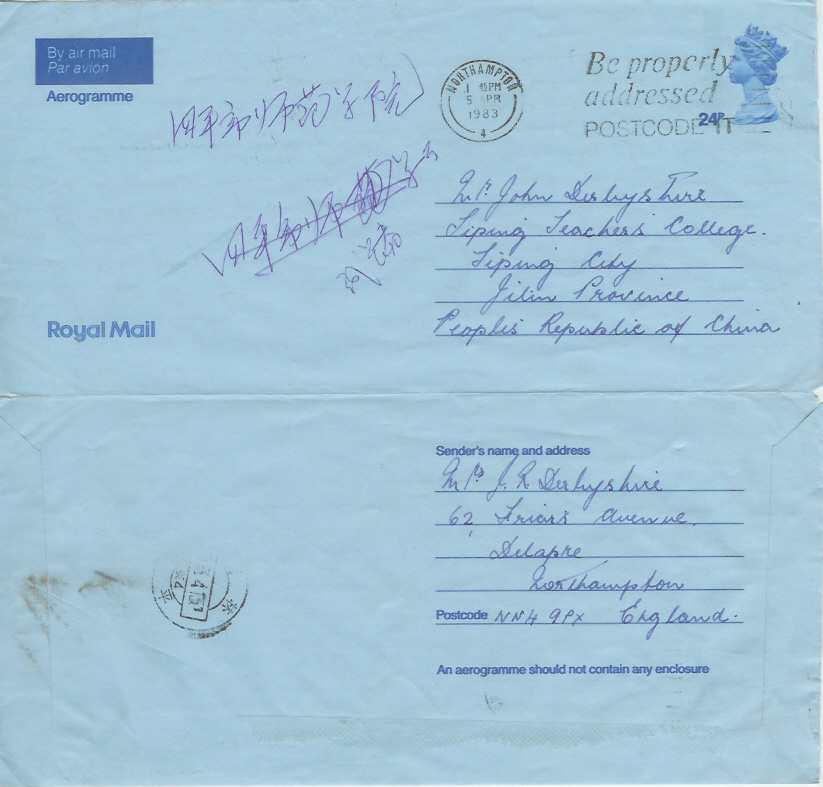 By air mail
Par avion
Aerogramme
四平市师范学院
NORTHAMPTON
5 APR
1983
4
Be properly
addressed
POSTCODE IT
24P
四平市师范学
Mr John Derbyshire
Siping Teachers College.
Siping City
Jilin Province
Peoples Republic of China
Royal Mail
Sender's name and address
Mrs J. R. Derbyshire
62, Friars Avenue,
Delapre
Northampton
Postcode NN4 9PX England.
An aerogramme should not contain any enclosure